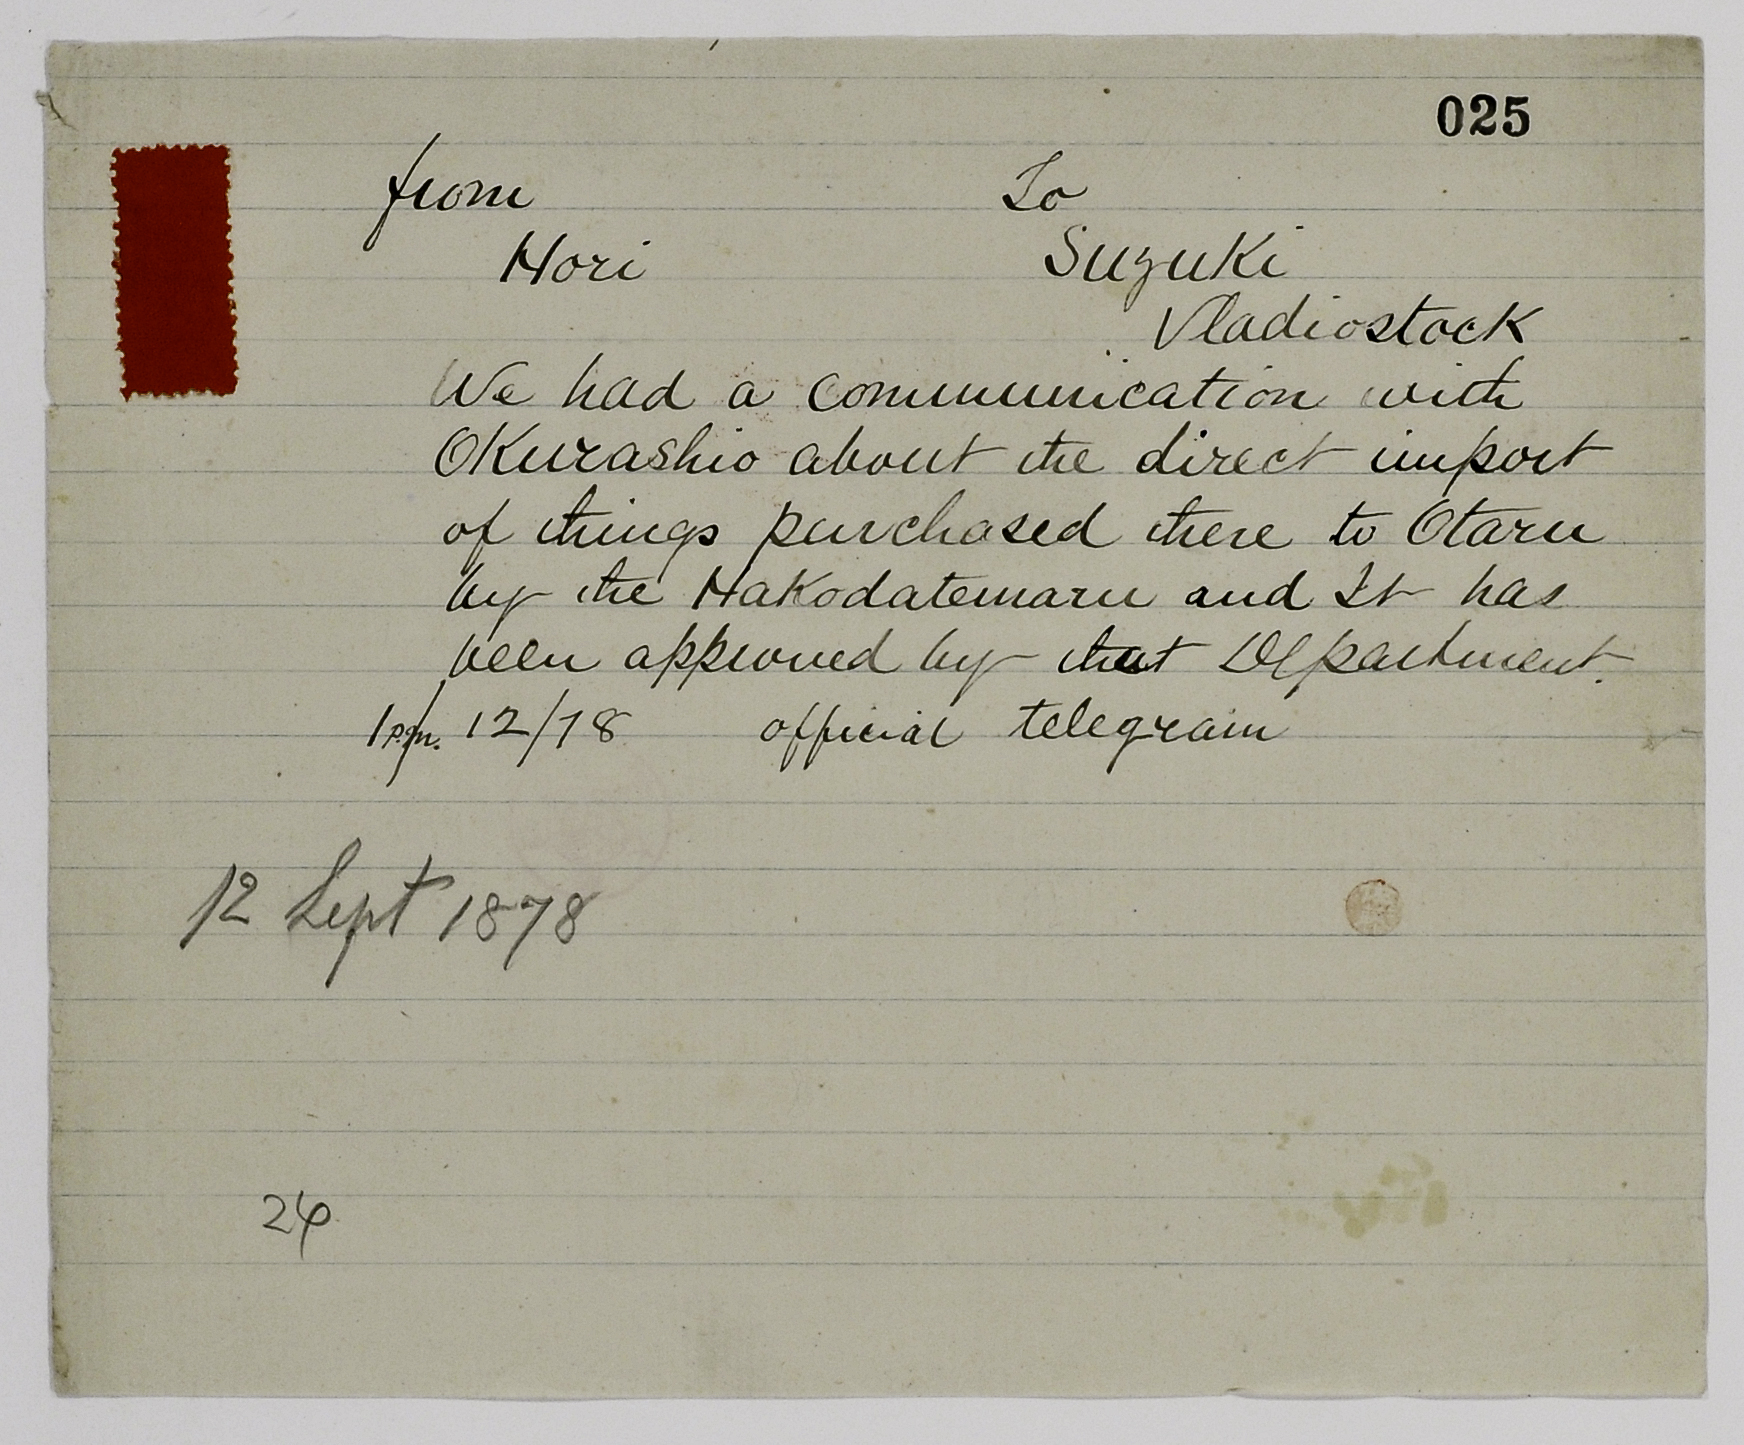 025
from To
Hori Suzuki
Vladiostock
We had a communication with
Okurashio about the direct import
of things purchased there to Otaru
by the Hakodatemaru and It has
been approved by that Department.
1 p.m. 12/78 official telegram
12 Sept 1878
24